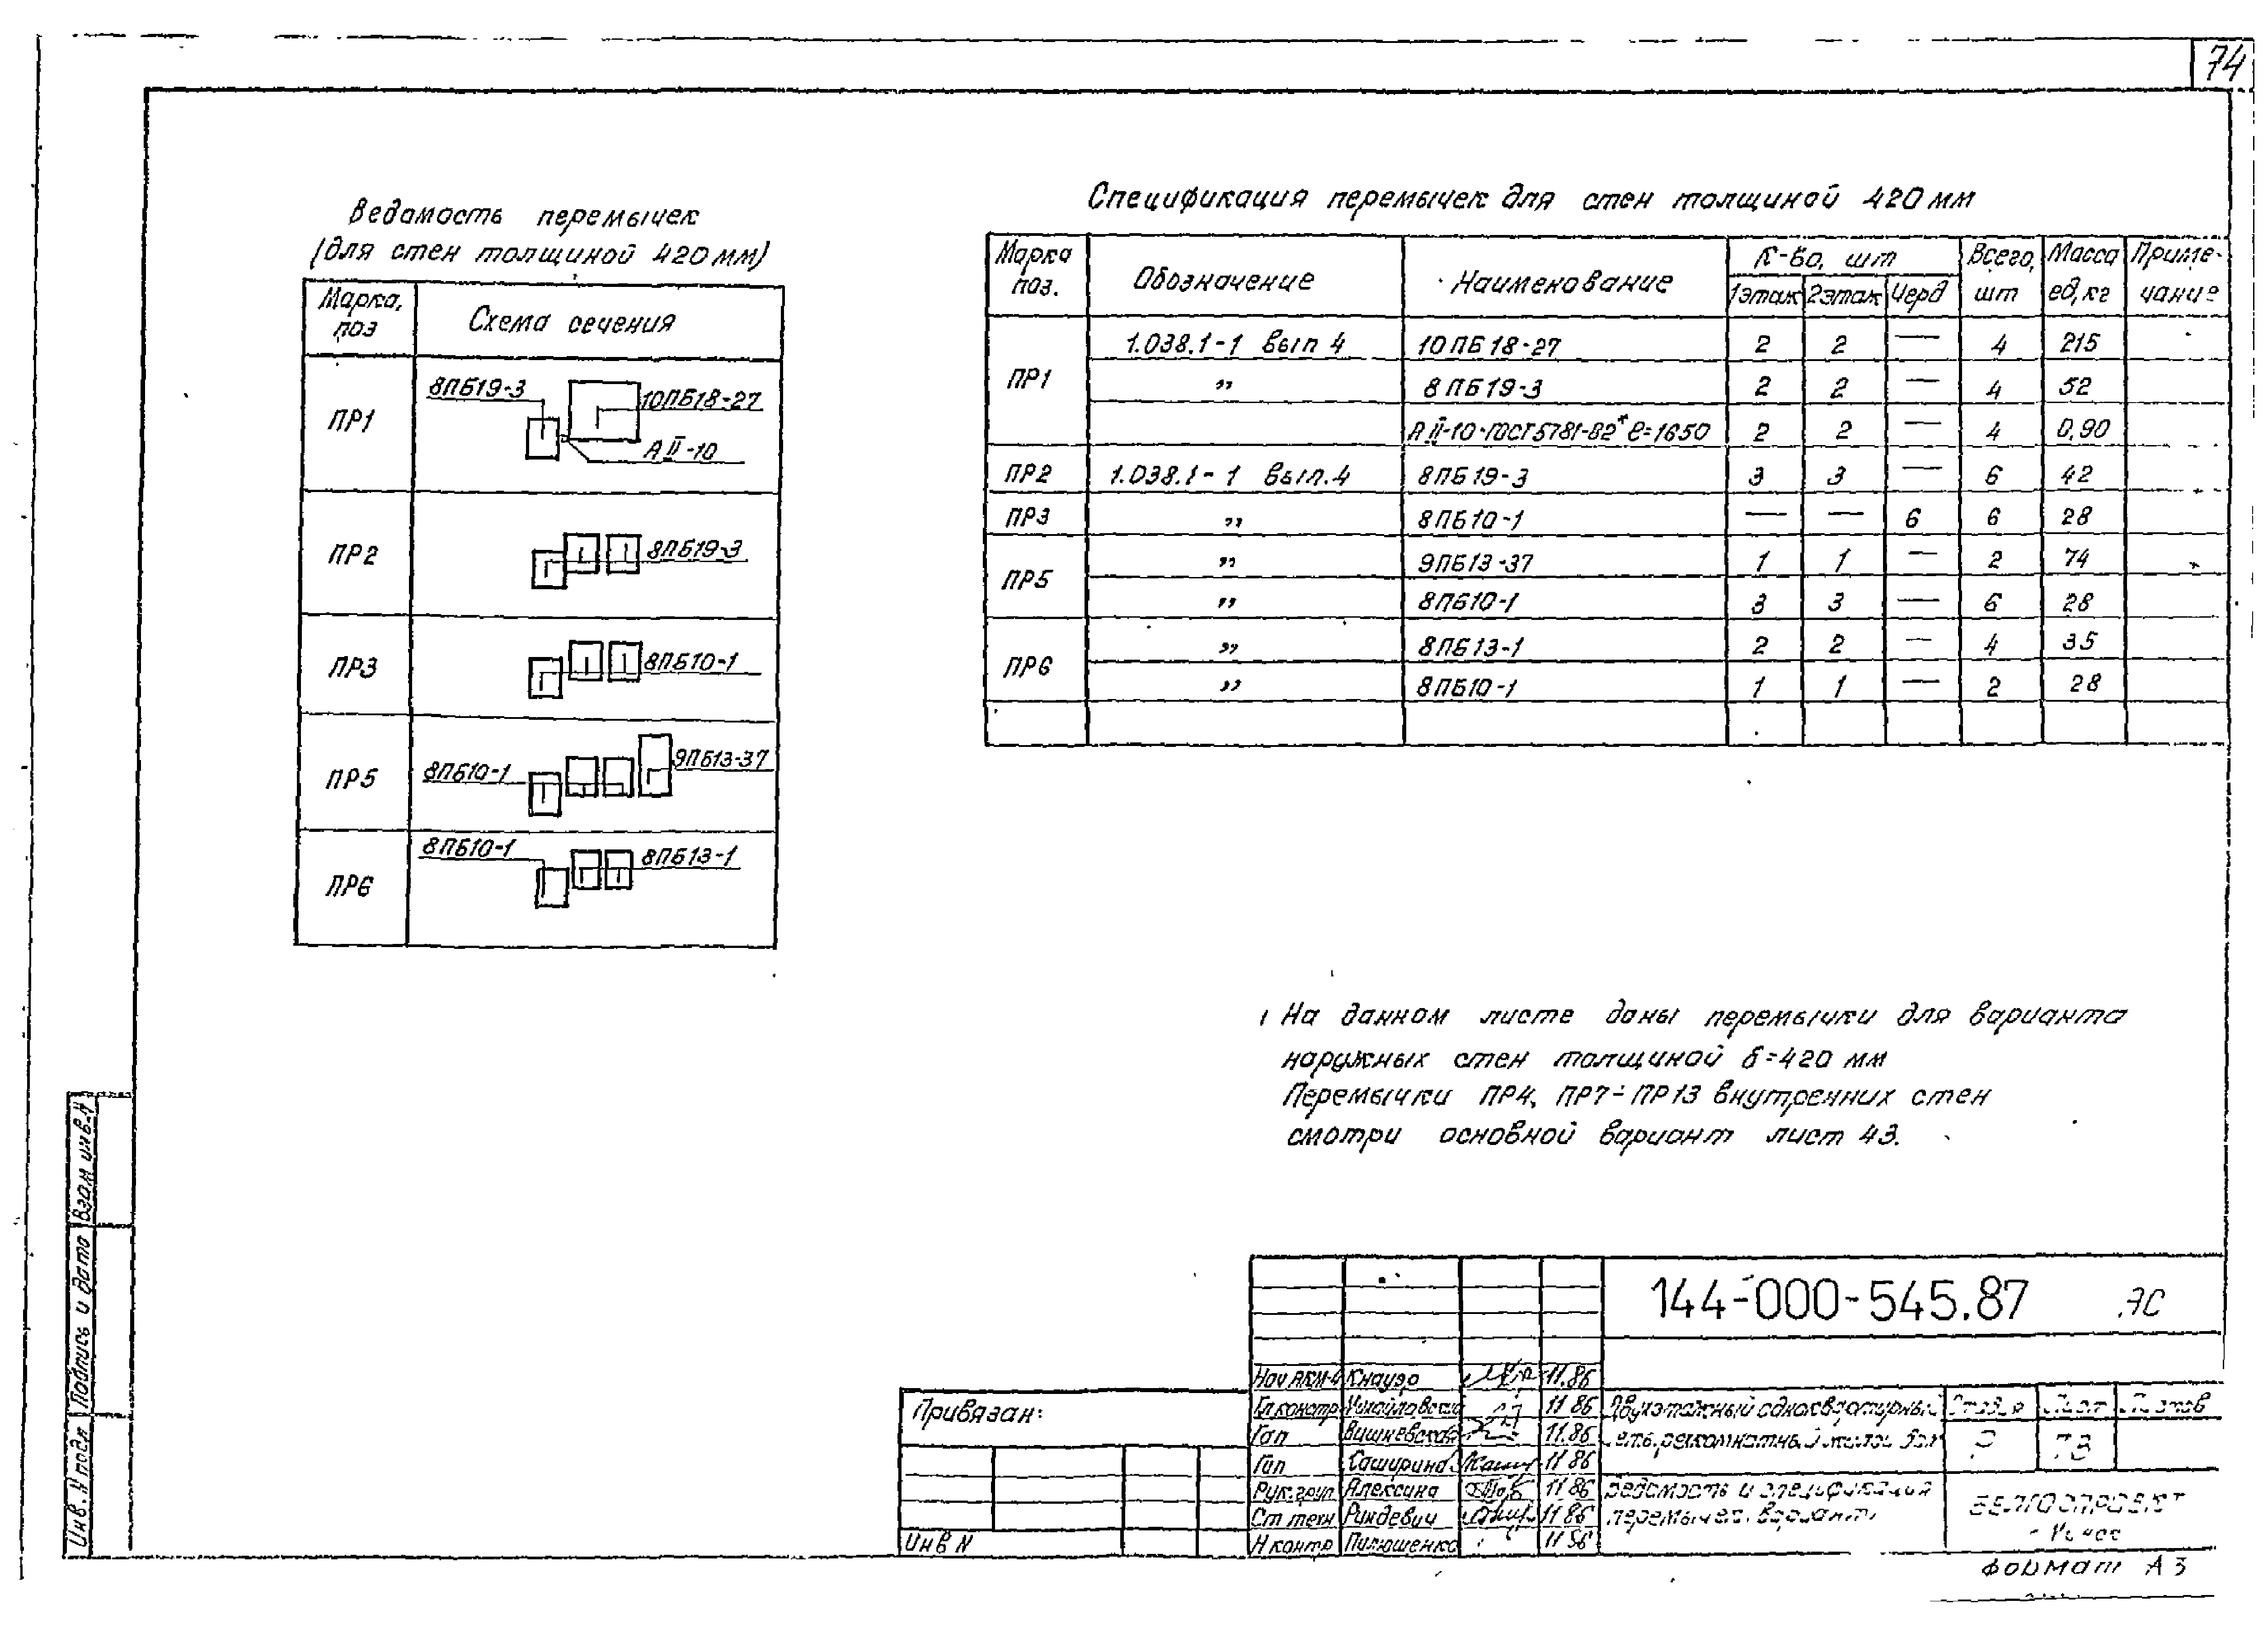 74
Ведомость перемычек
(для стен толщиной 420 мм)
Марка, поз
Схема сечения
ПР1
8ПБ19-3
10ПБ18-27
А II-10
ПР2
8ПБ19-3
ПР3
8ПБ10-1
ПР5
8ПБ10-1
9ПБ13-37
ПР6
8ПБ10-1
8ПБ13-1
Спецификация перемычек для стен толщиной 420 мм
Марка поз. Обозначение Наименование К-во, шт Всего, шт Масса ед, кг Примечание
1этаж 2этаж Черд
ПР1 1.038.1-1 вып 4 10ПБ18-27 2 2 — 4 215
" 8ПБ19-3 2 2 — 4 52
А II-10 ГОСТ 5781-82* ℓ=1650 2 2 — 4 0,90
ПР2 1.038.1-1 вып.4 8ПБ19-3 3 3 — 6 42
ПР3 " 8ПБ10-1 — — 6 6 28
ПР5 " 9ПБ13-37 1 1 — 2 74
" 8ПБ10-1 3 3 — 6 28
ПР6 " 8ПБ13-1 2 2 — 4 35
" 8ПБ10-1 1 1 — 2 28
1 На данном листе даны перемычки для варианта
наружных стен толщиной δ=420 мм
Перемычки ПР4, ПР7÷ПР13 внутренних стен
смотри основной вариант лист 43.
Взам инв.N
Подпись и дата
Инв. N подл
Привязан:
Инв N
144-000-545.87 АС
Нач АКМ-4 Кнауэр 11.86
Гл констр Михайловский 11 86
Гап Вишневская 11.86
Гип Сашурина 11 86
Рук. груп Алексина 11 86
Ст техн Риндевич 11 86
Н контр Пилюшенко 11 86
Двухэтажный одноквартирный
четырехкомнатный жилой дом
Стадия Лист Листов
Р 73
Ведомость и спецификация
перемычек. Вариант
БЕЛГОСПРОЕКТ
г Минск
Формат А3